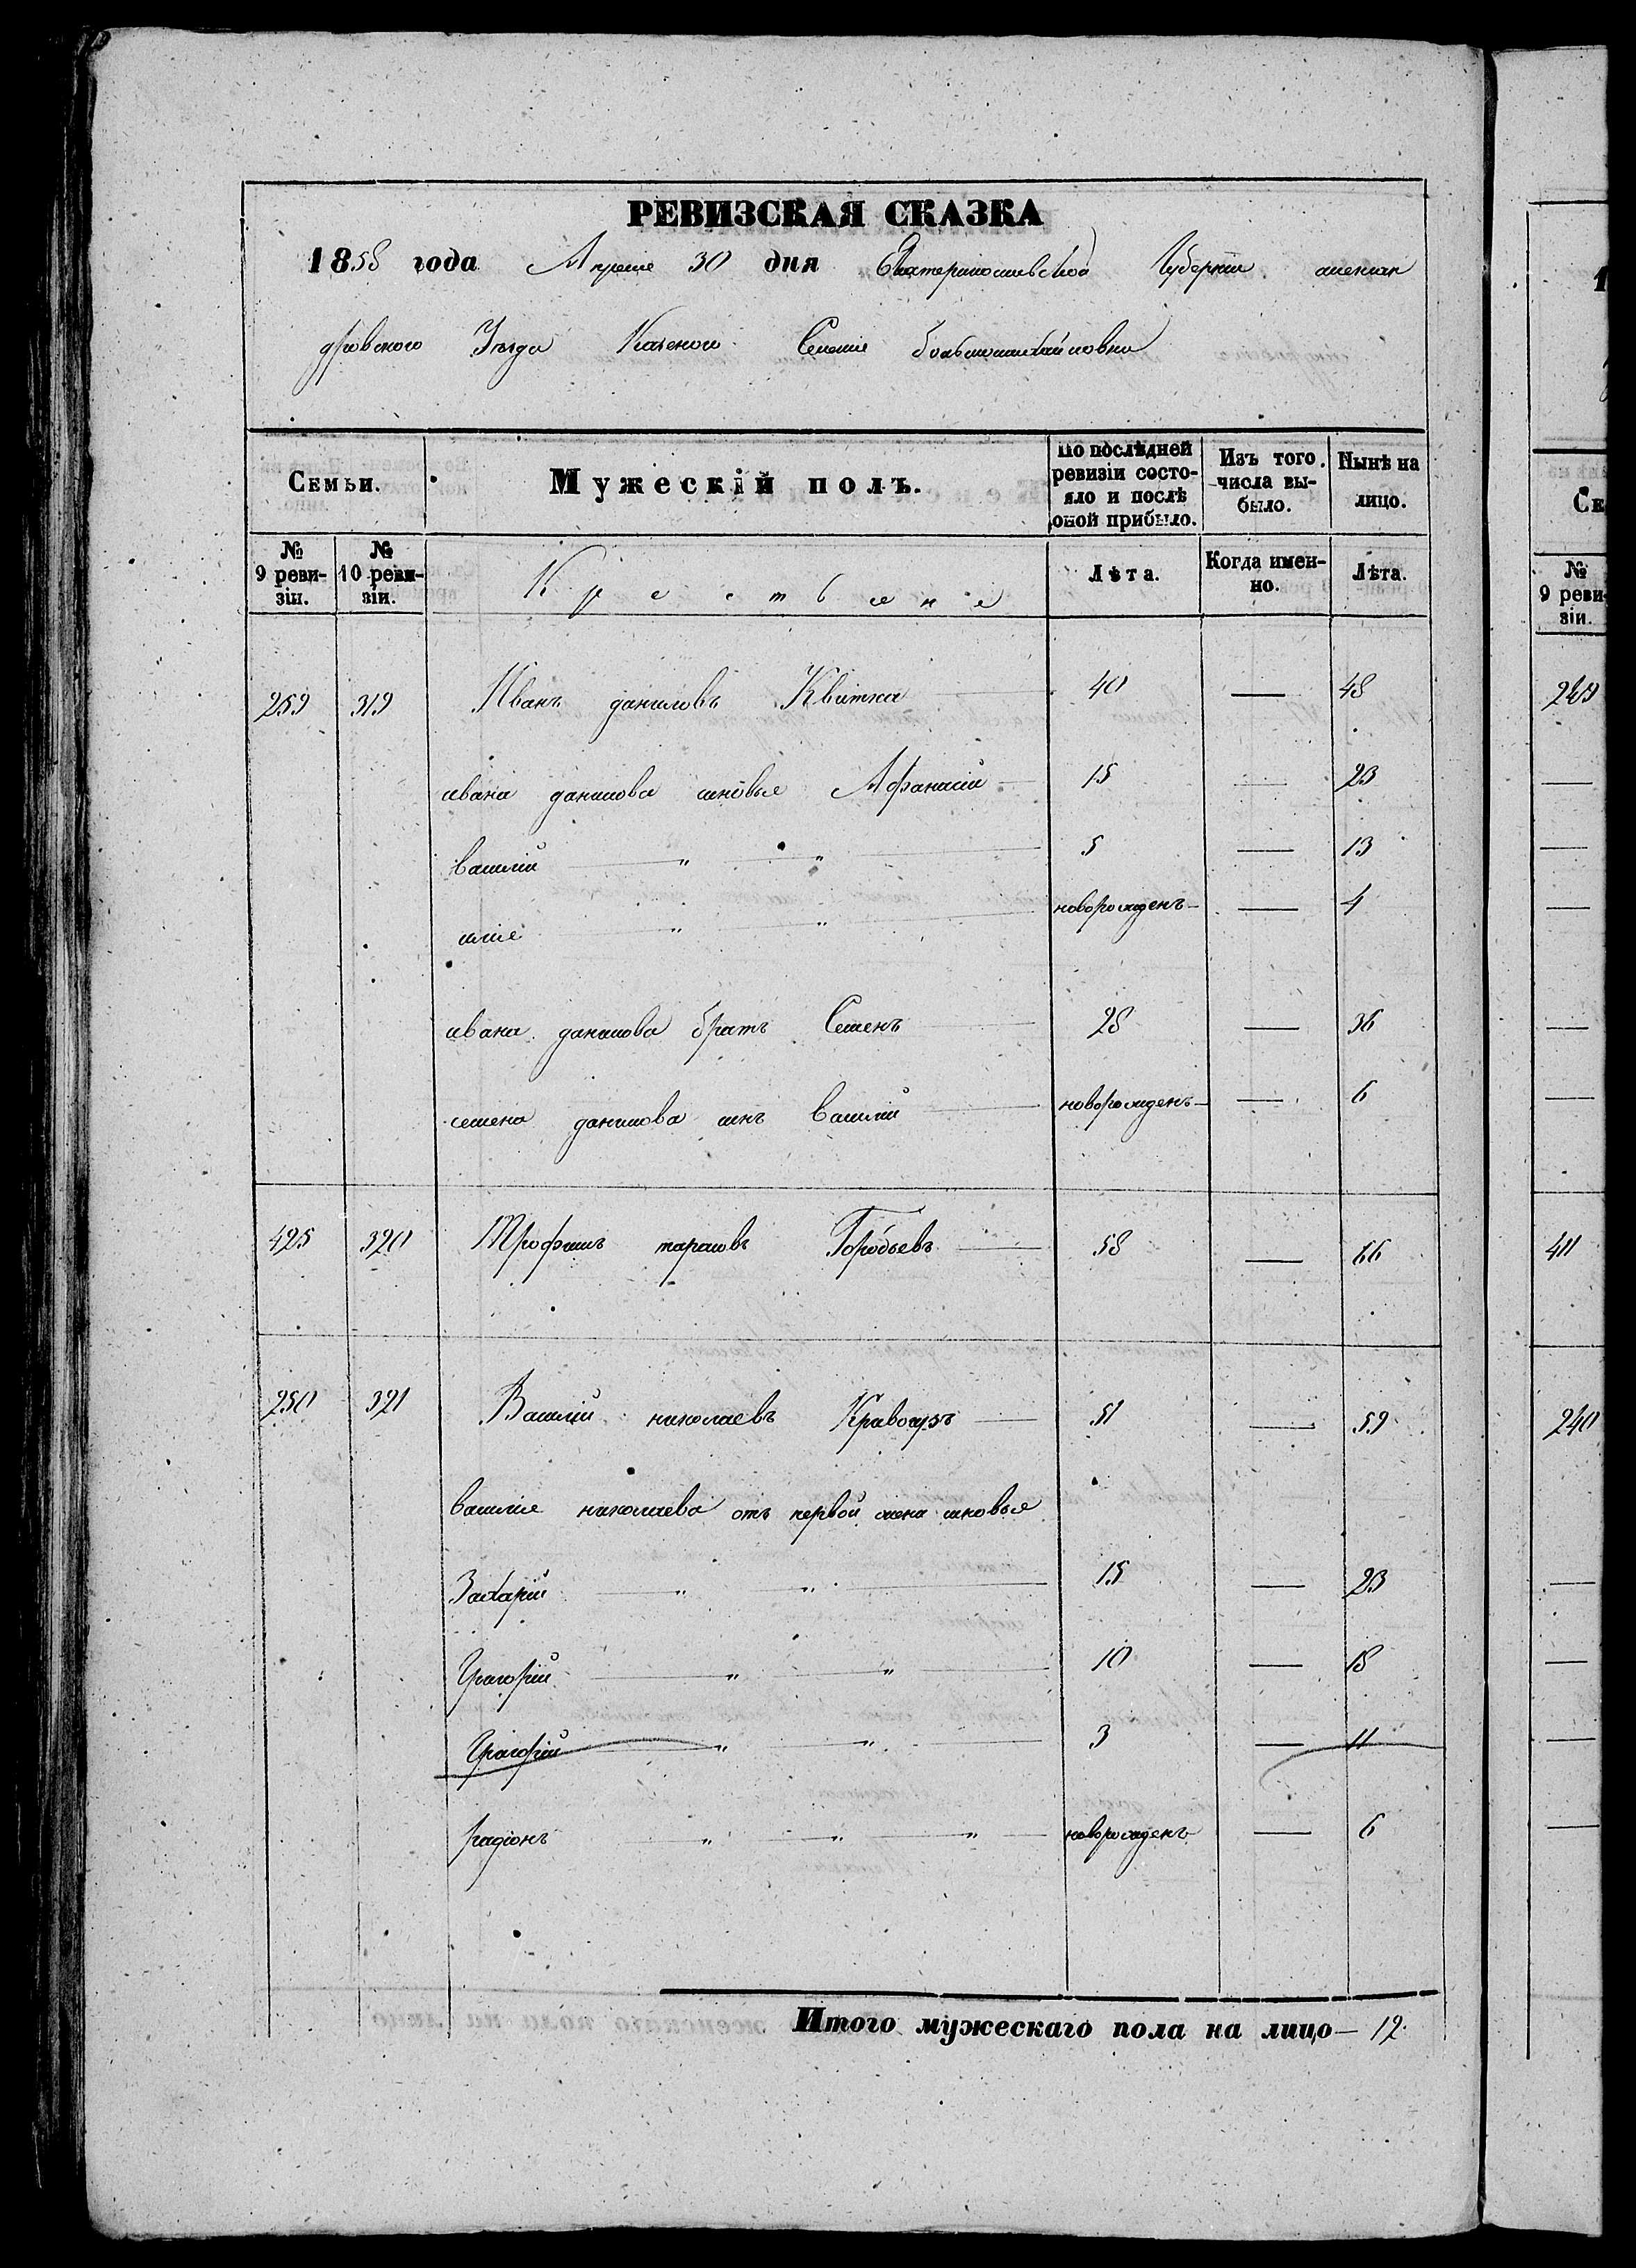 РЕВИЗСКАЯ СКАЗКА
1858 года Апреле 30 дня Екатеринославской Губернии алексан
дровского Уезда Казеного Селения большомихайловки
Семьи. Мужескій полъ. По послѣдней ревизіи состояло и послѣ оной прибыло. Изъ того числа выбыло. Нынѣ на лицо.
№ 9 ревизіи. № 10 ревизіи. Крестьяне Лѣта. Когда именно. Лѣта.
259 319 Иванъ даниловъ Квитка 40 — 48
ивана данилова синовья Афанасій — 15 — 23
василій — „ — „ — 5 — 13
илія — „ — „ — новорожденъ — — 4
ивана данилова братъ Семенъ — 28 — 36
семена данилова синъ василій — новорожденъ — — 6
425 320 Трофимъ тарасовъ — 58 — 66
250 321 Василій николаевъ Кравецъ — 51 — 59
василия николаева отъ первой жени синовья
Захарій — „ — „ — 15 — 23
Григорій — „ — „ — 10 — 18
Григорій — „ — „ — 3 — 11
радіонъ — „ — „ — „ — новорожденъ — 6
Итого мужескаго пола на лицо — 12.
1
Се
№ 9 реви зіи.
249
411
240